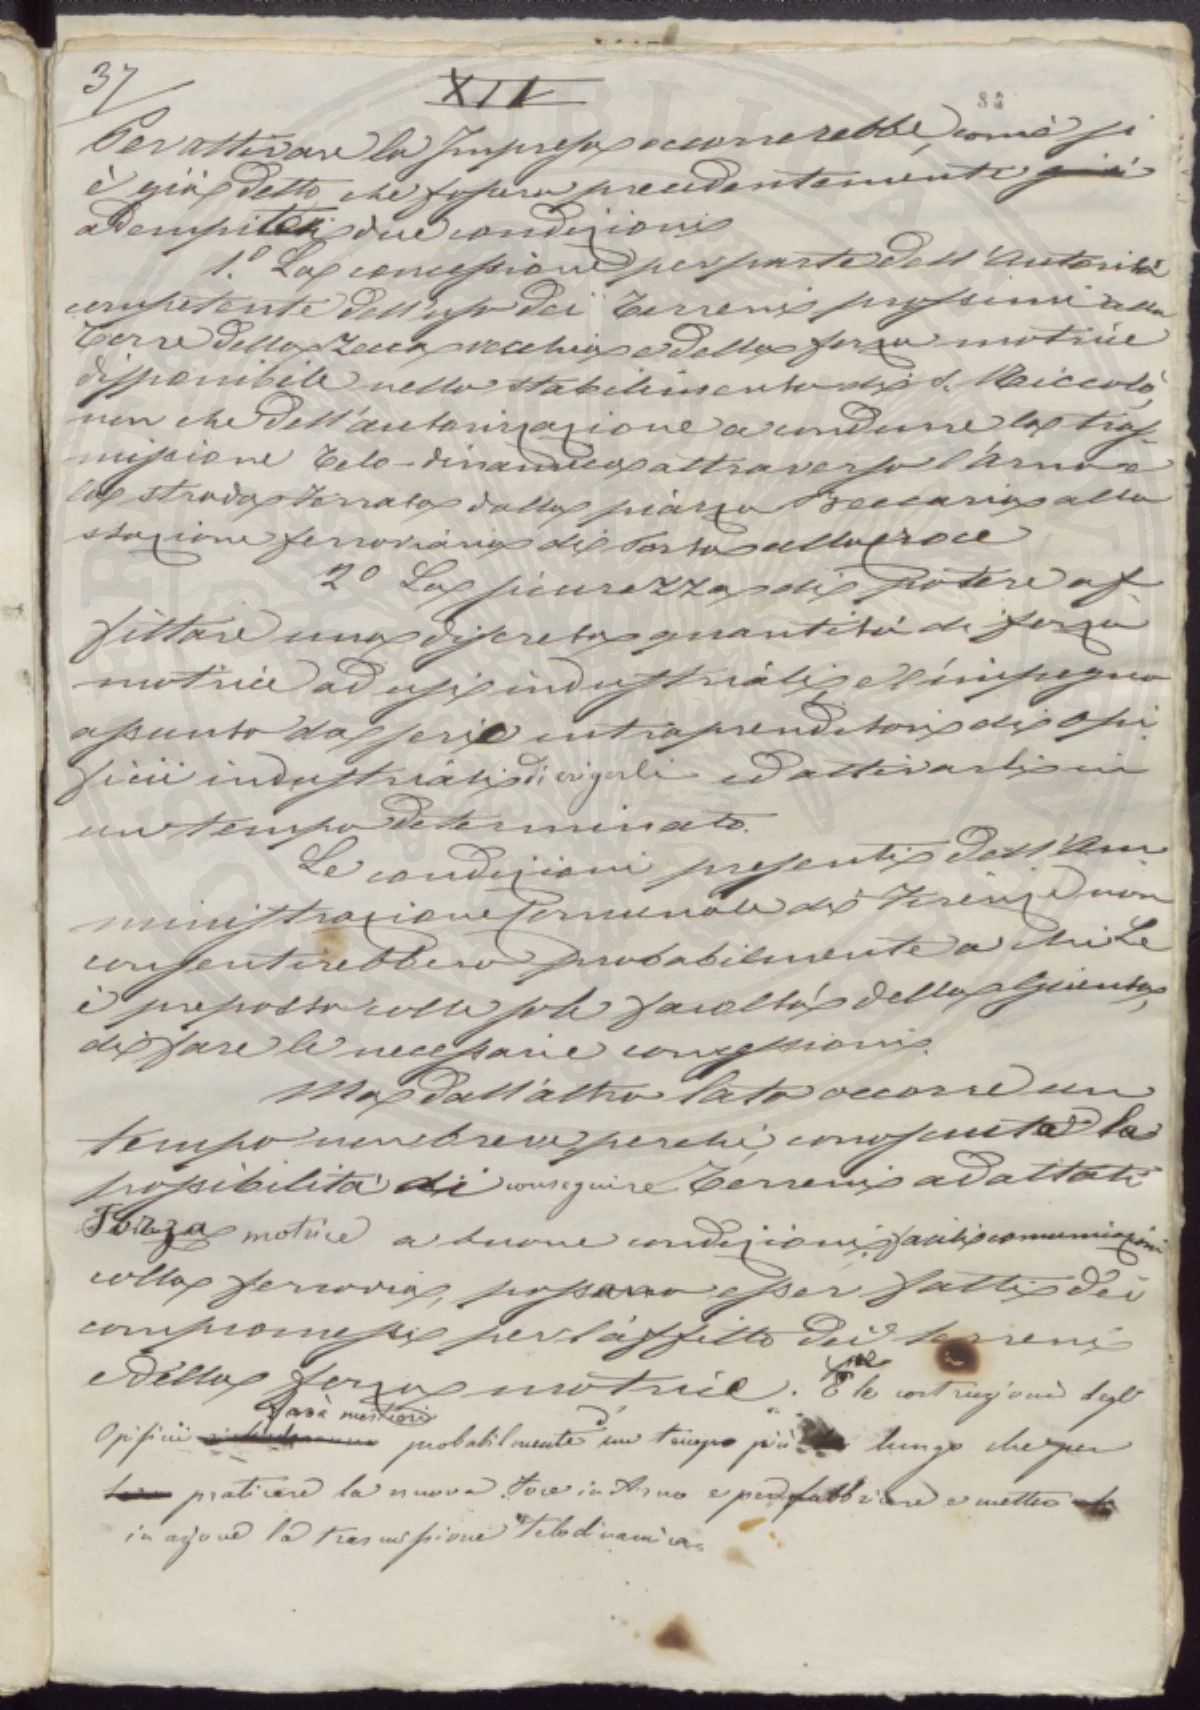 37
XIV
Per attivare la Impresa occorrerebbe, come si
è già detto che fossero precedentemente già
adempite due condizioni
1.º La concessione per parte dell'Autorità
competente dell'uso dei Terreni prossimi alla
Torre della Zecca vecchia e della forza motrice
disponibile nello stabilimento di S. Niccolò,
non che dell'autorizzazione a condurre la tras-
missione Telo-dinamica attraverso l'Arno e
la strada ferrata dalla piazza Beccaria alla
stazione ferroviaria di Porta alla croce
2º La sicurezza di potere af-
fittare una discreta quantità di forza
motrice ad usi industriali e l'impegno
assunto da serii intraprenditori di opi-
ficii industriali di erigerli ed attivarli in
un tempo determinato.
Le condizioni presenti dell'Am-
ministrazione Comunale di Firenze non
consentirebbero probabilmente a chi Le
è preposto colle sole facoltà della Giunta,
di fare le necessarie concessioni.
Ma dall'altro lato occorre un
tempo non breve perchè, conosciuta la
possibilità di conseguire Terreni adattati
Forza motrice a buone condizioni, facili comunicazioni
colla ferrovia, possano esser fatti dei
compromessi per l'affitto dei terreni
e della forza motrice. E per la costruzione degli
Opificii sarà mestieri probabilmente d'un tempo più lungo che per
praticare la nuova foce in Arno e per fabbricare e mettere
in azione la trasmissione Telodinamica.